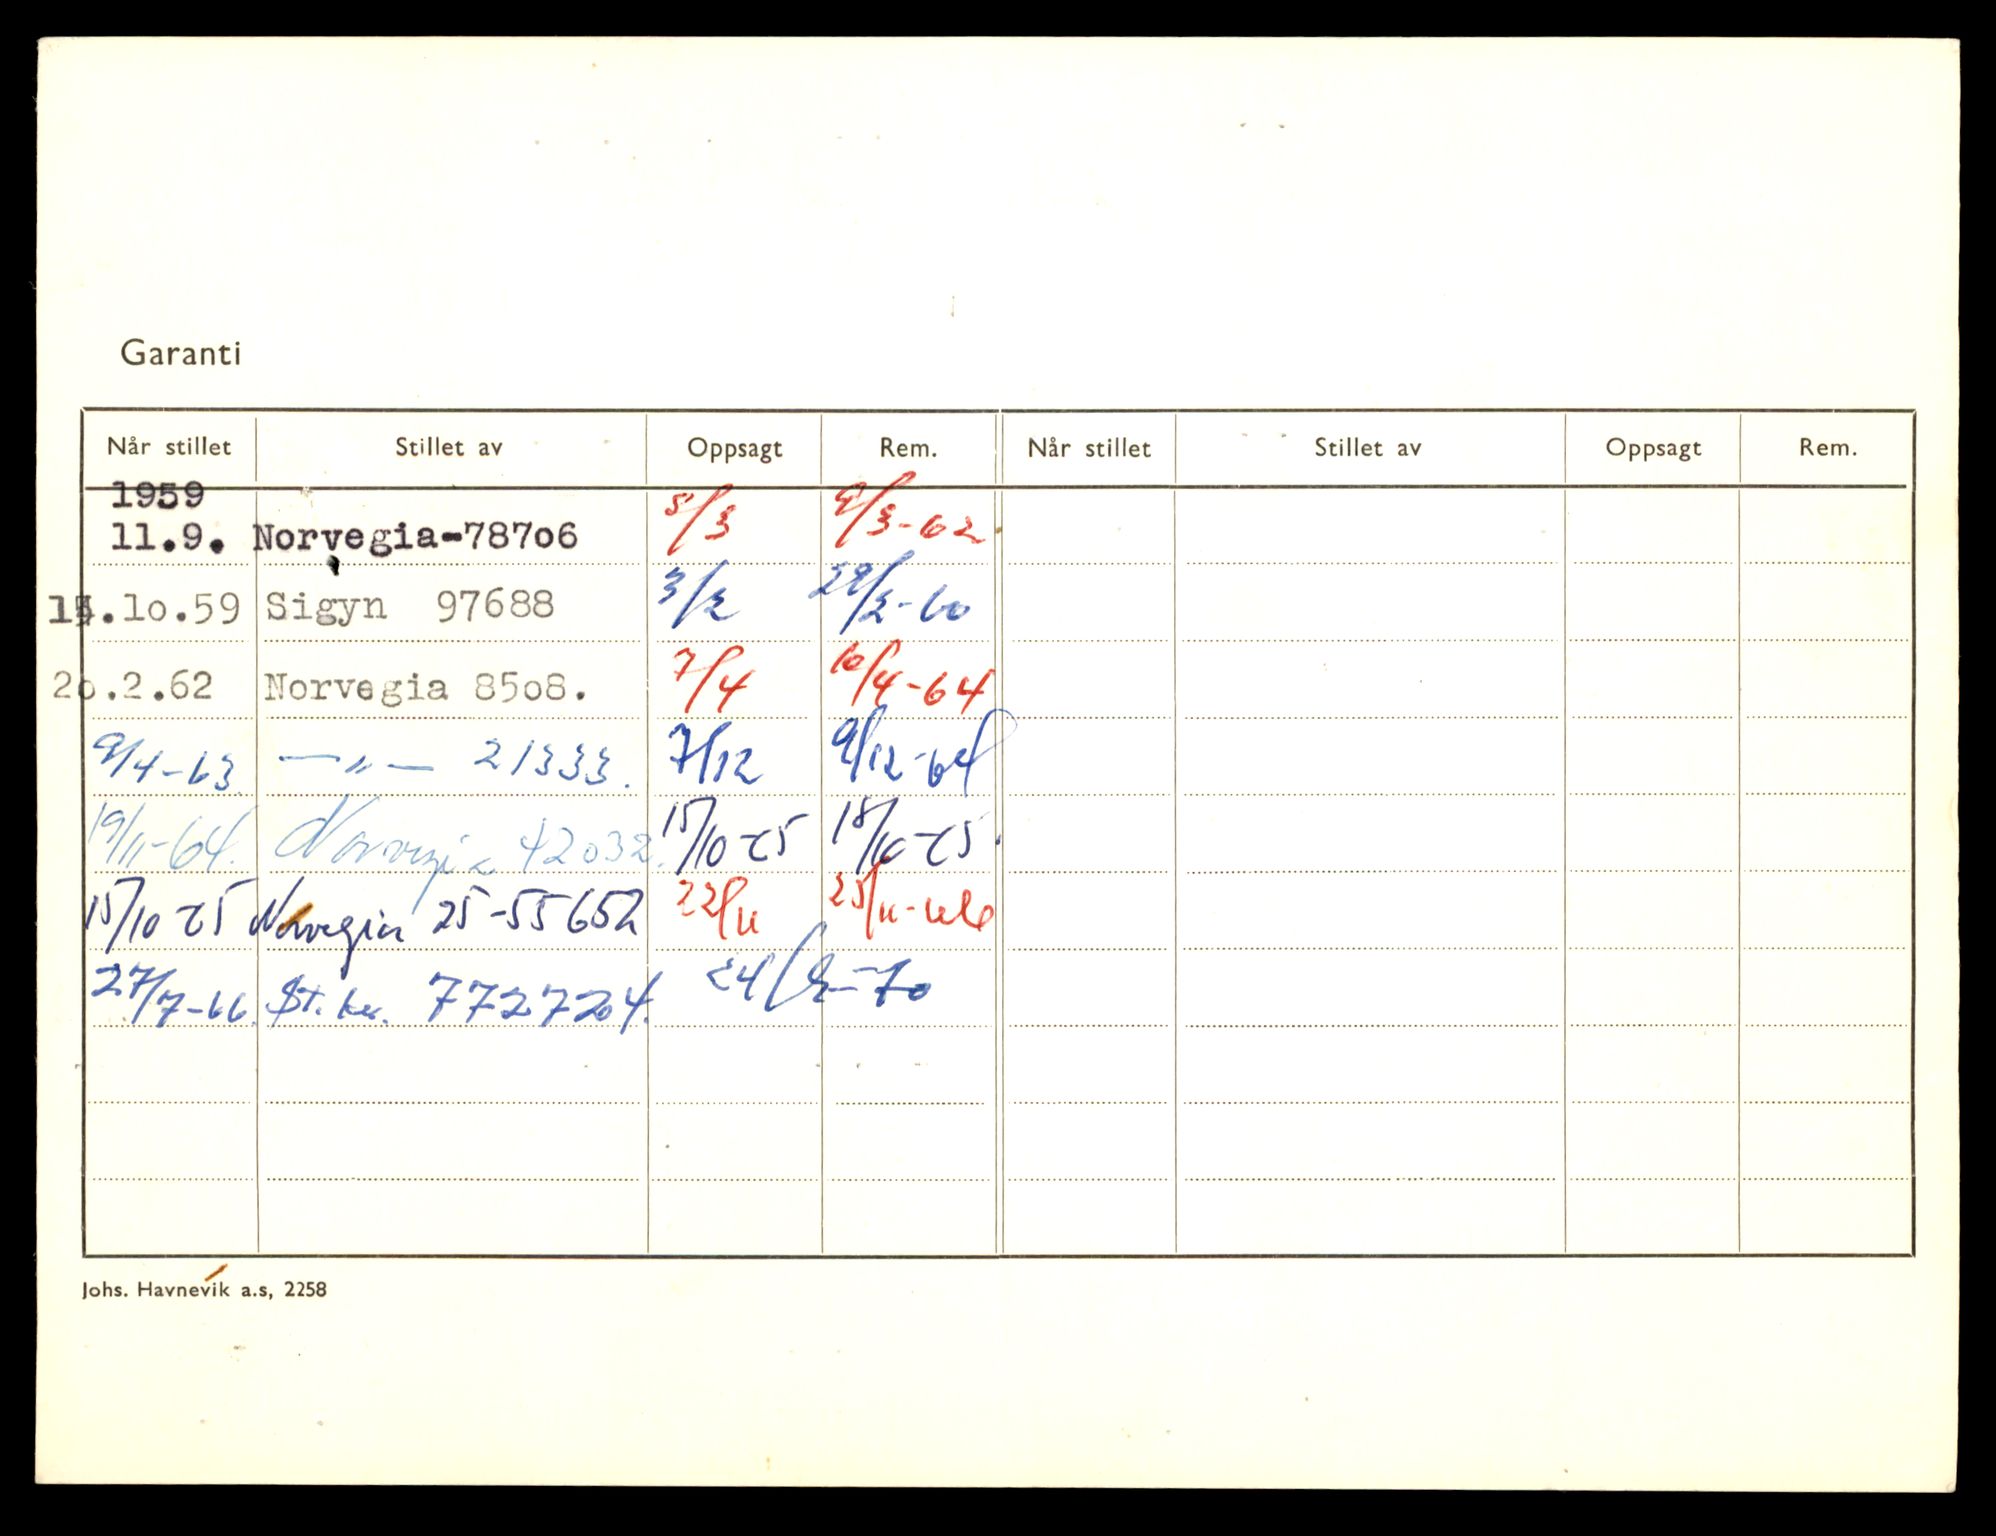 Garanti
Når stillet Stillet av Oppsagt Rem. Når stillet Stillet av Oppsagt Rem.
1959
11.9. Norvegia-787o6 5/3 9/3-62
.1o.59 Sigyn 97688 3/2 29/2-60
2o.2.62 Norvegia 85o8. 7/4 10/4-64
9/4-63 —„— 21333. 7/12 9/12-64
19/11-64. Norvegia 42032. 15/10 65 18/10-65.
15/10 65 Norvegia 25-55652 22/11 25/11-66
27/7-66. St. 7727204. 24/2-70
Johs. Havnevik a.s, 2258